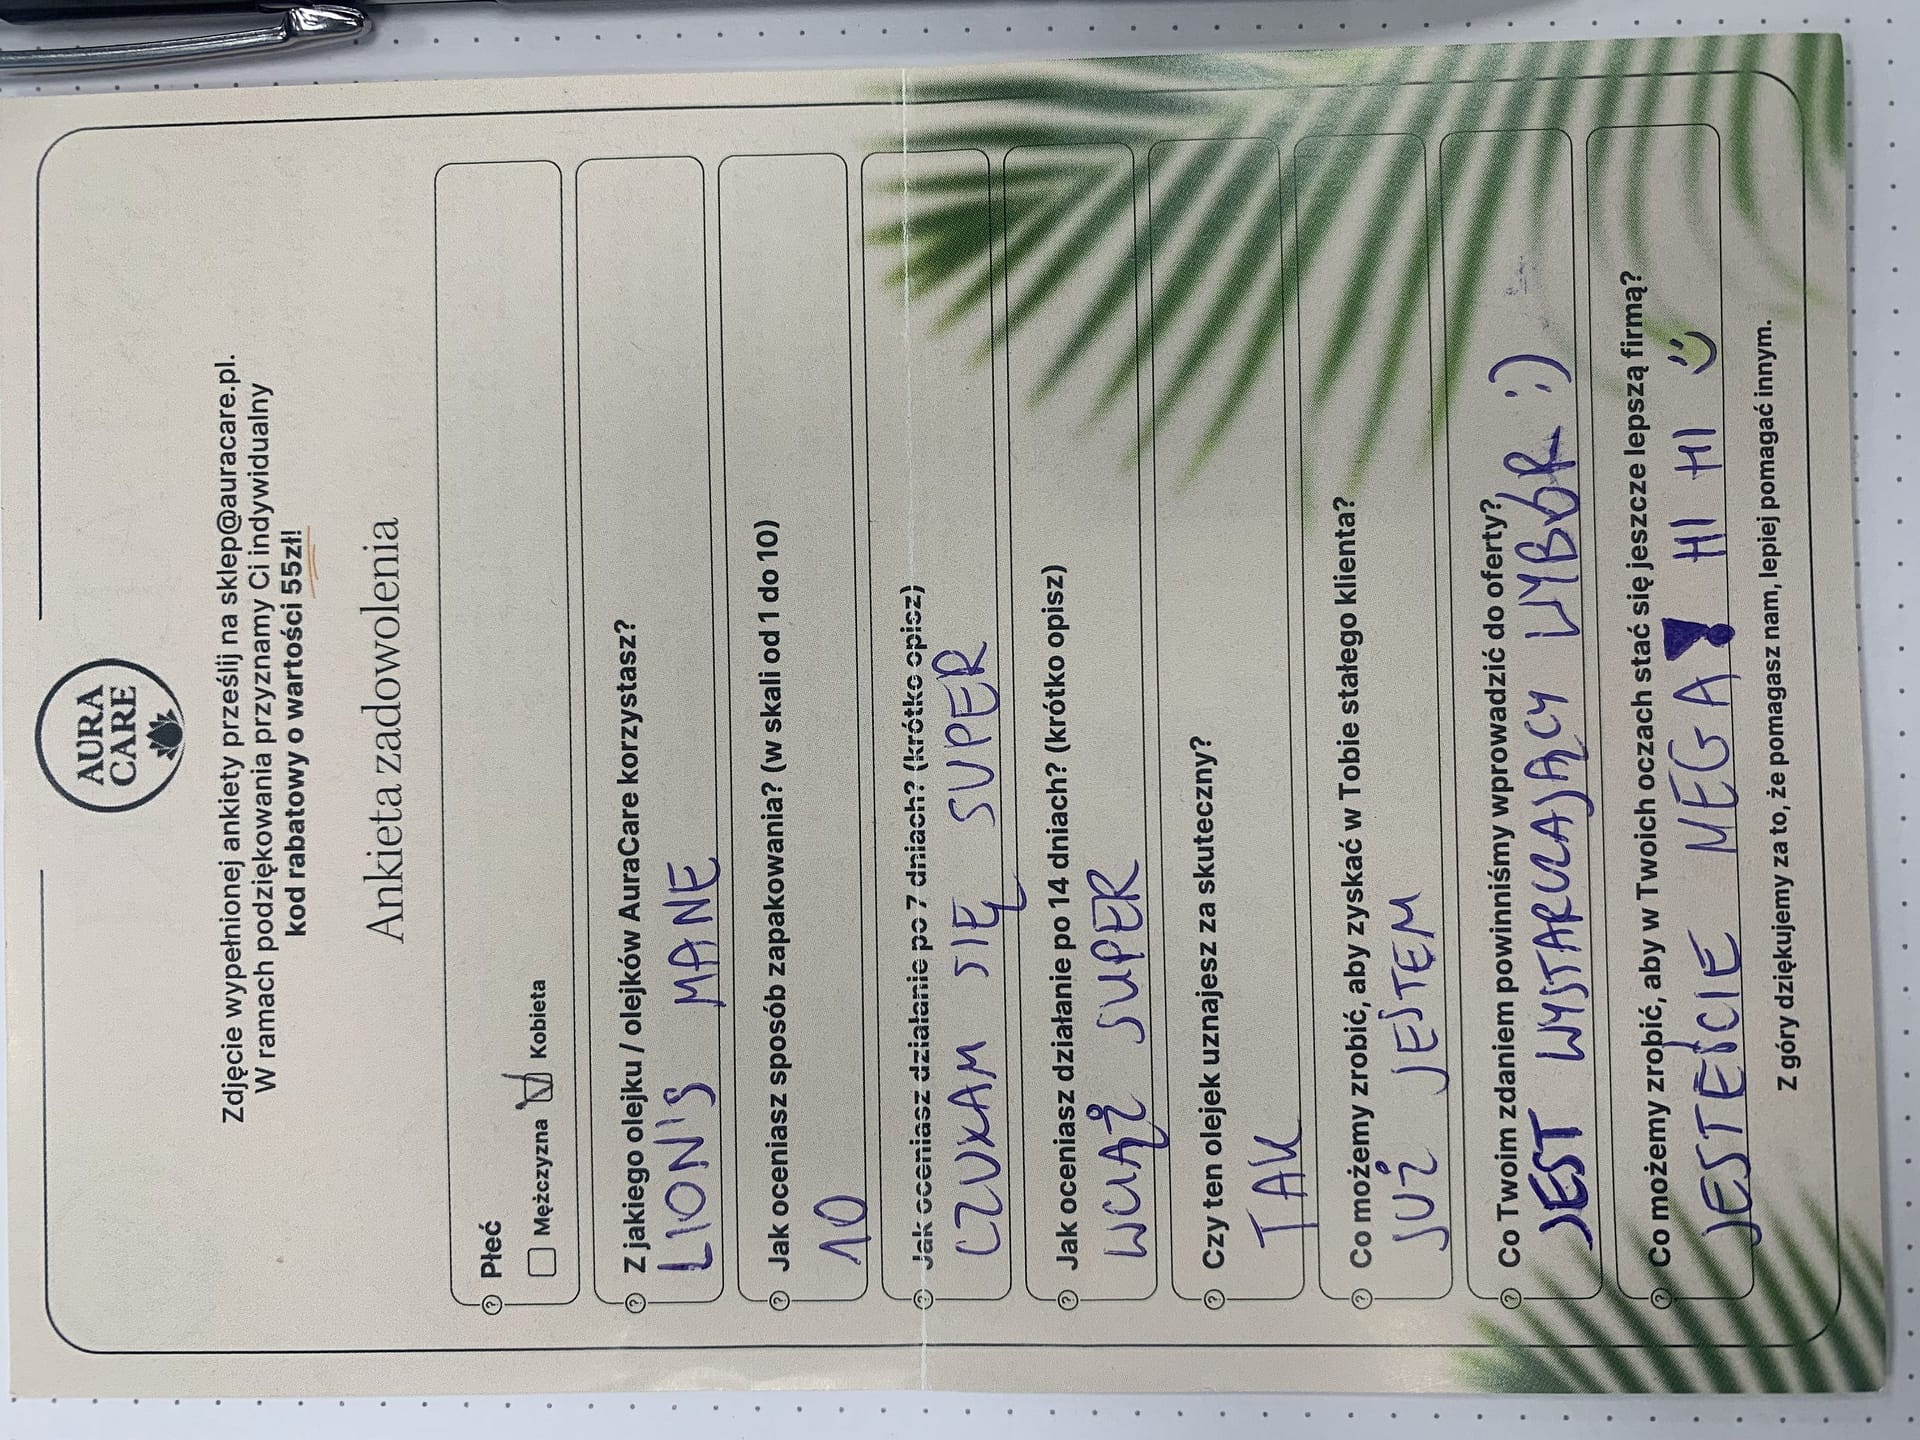 AURA
CARE
Zdjęcie wypełnionej ankiety prześlij na sklep@auracare.pl.
W ramach podziękowania przyznamy Ci indywidualny
kod rabatowy o wartości 55zł!
Ankieta zadowolenia
Płeć
Mężczyzna Kobieta
Z jakiego olejku / olejków AuraCare korzystasz?
LION'S MANE
Jak oceniasz sposób zapakowania? (w skali od 1 do 10)
10
Jak oceniasz działanie po 7 dniach? (krótko opisz)
CZUXAM SIĘ SUPER
Jak oceniasz działanie po 14 dniach? (krótko opisz)
WCIĄŻ SUPER
Czy ten olejek uznajesz za skuteczny?
TAK
Co możemy zrobić, aby zyskać w Tobie stałego klienta?
JUŻ JESTEM
Co Twoim zdaniem powinniśmy wprowadzić do oferty?
JEST WYSTARCZAJĄCY WYBÓR :)
Co możemy zrobić, aby w Twoich oczach stać się jeszcze lepszą firmą?
JESTEŚCIE MEGA! HI HI :)
Z góry dziękujemy za to, że pomagasz nam, lepiej pomagać innym.